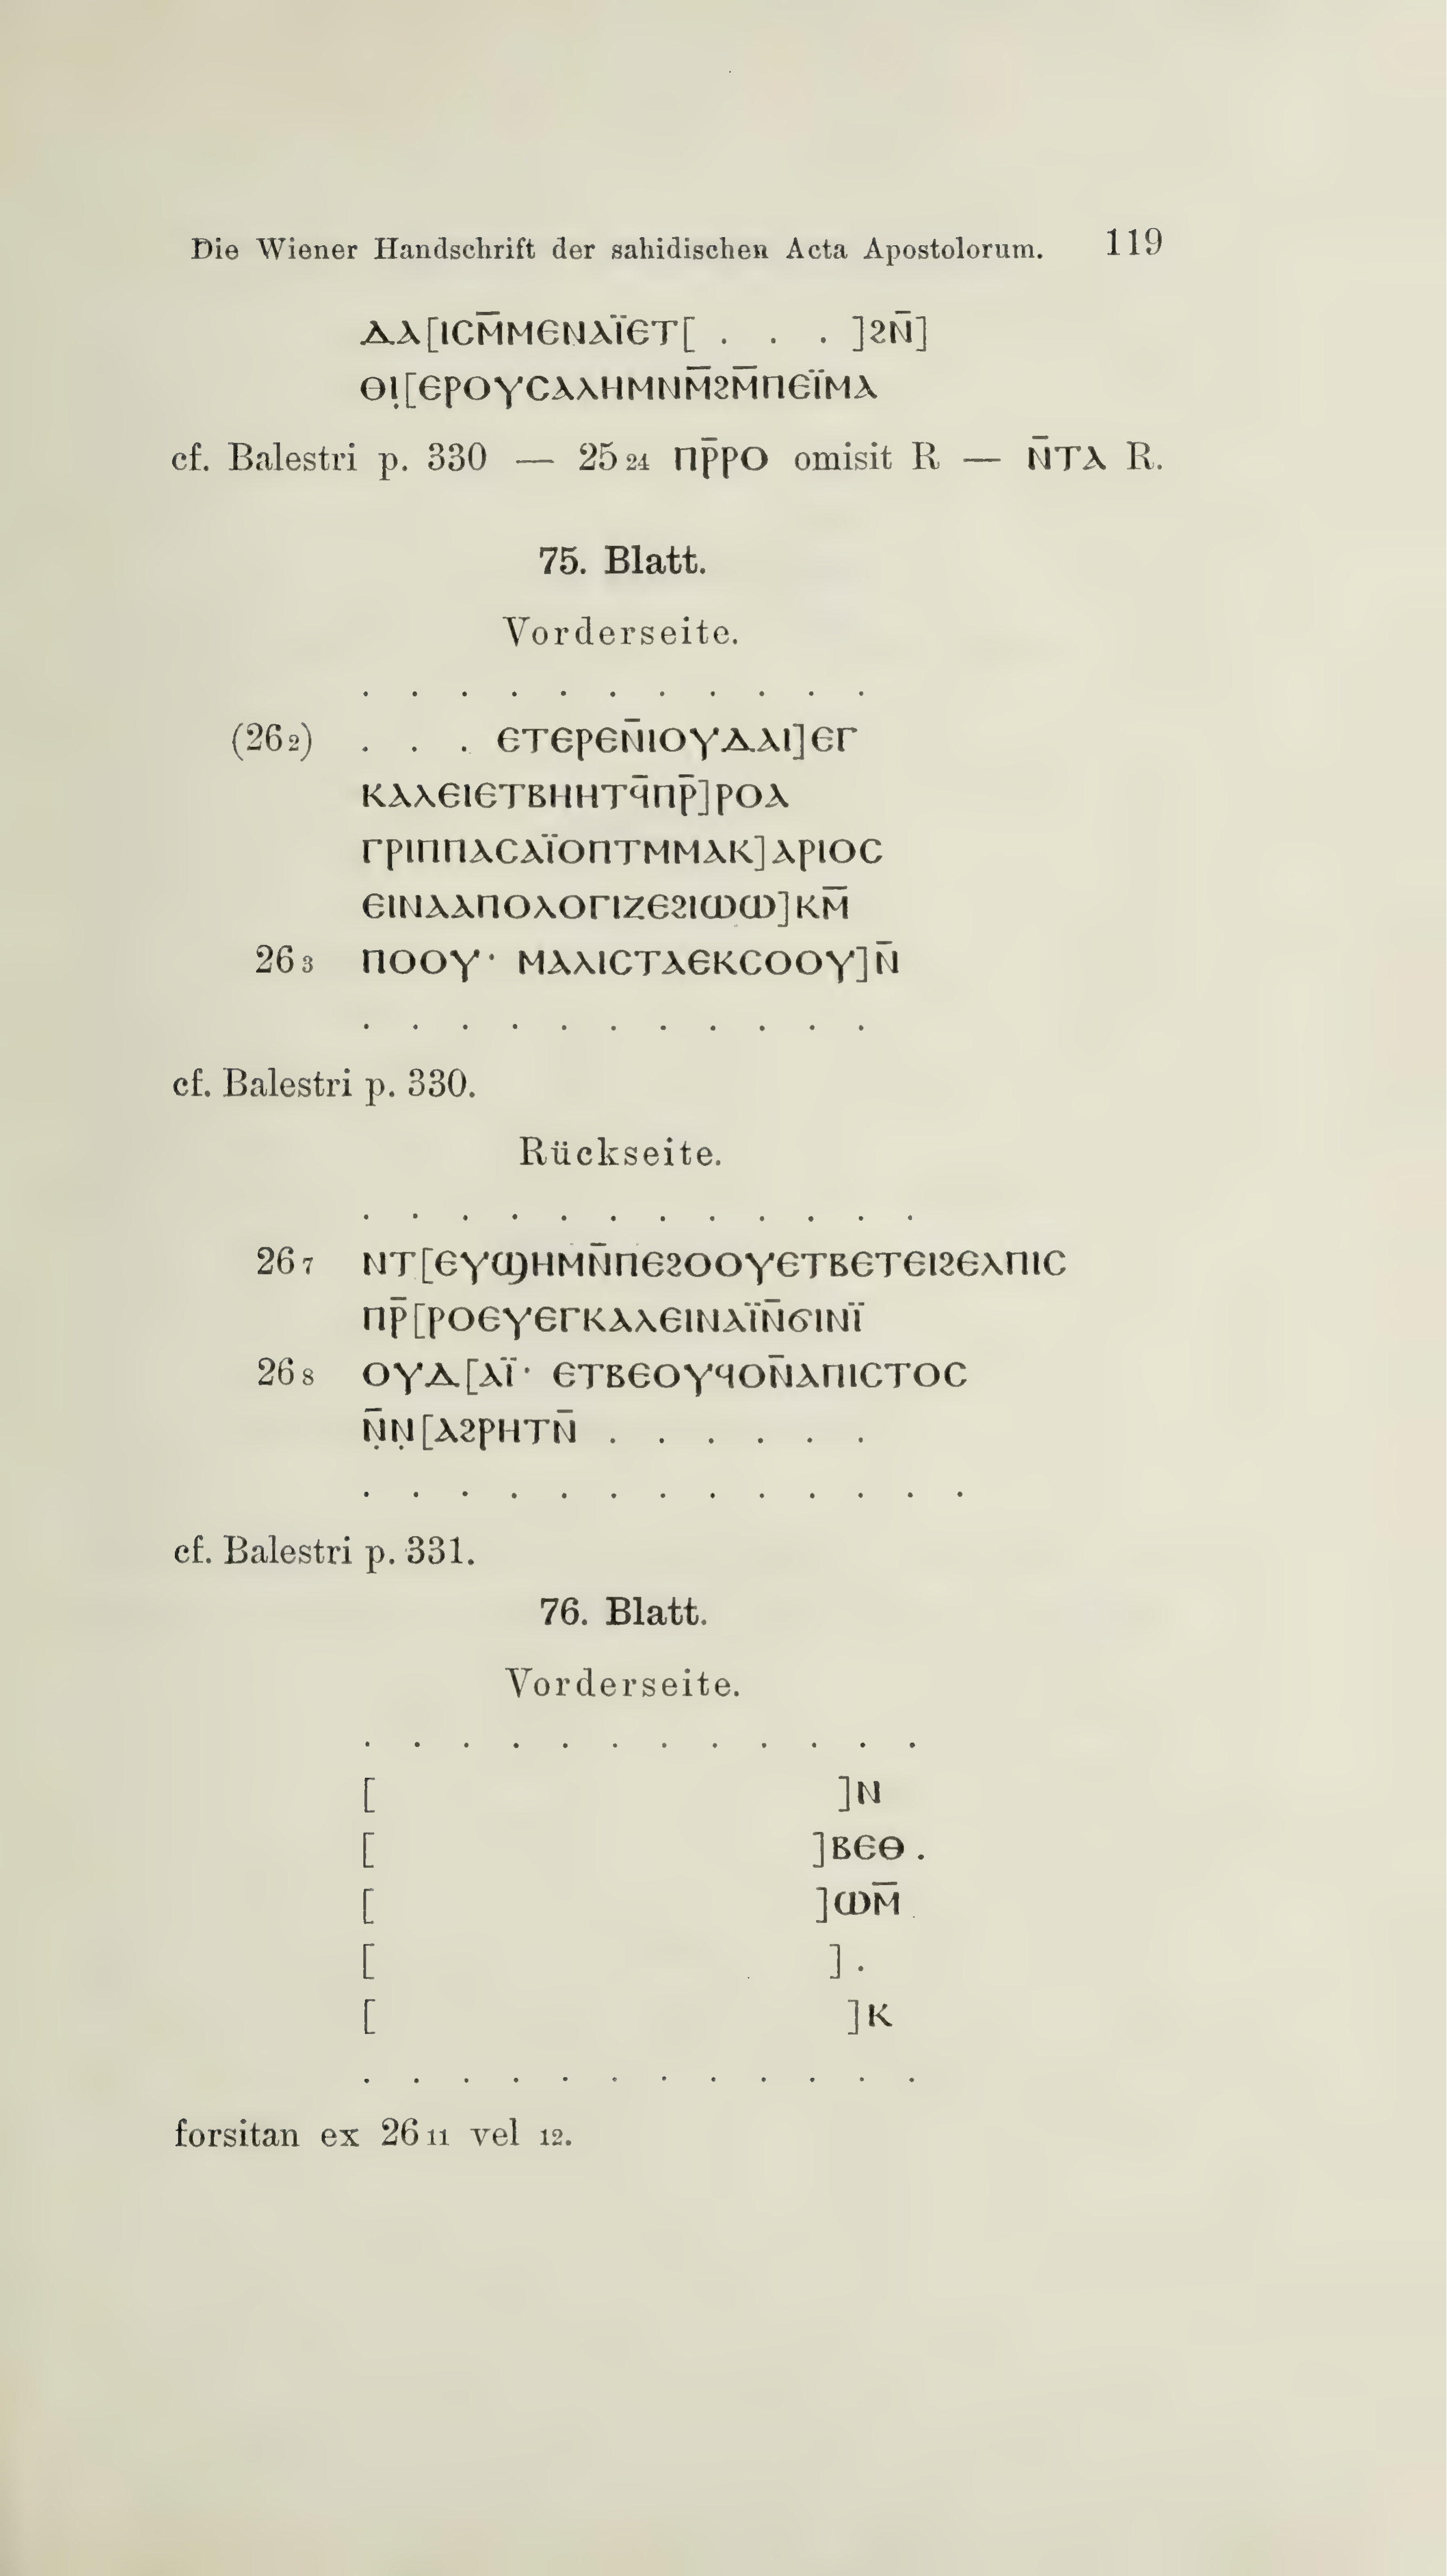 Die Wiener Handschrift der sahidischen Acta Apostolorum. 119
ⲇⲁ[ⲓⲥⲙ̄ⲙⲉⲛⲁⲓ̈ⲉⲧ[ . . . ]ϩⲛ̄]
ⲑⲓ̣[ⲉⲣⲟⲩⲥⲁⲗⲏⲙⲛⲙ̄ϩⲙ̄ⲡⲉⲓ̈ⲙⲁ
cf. Balestri p. 330 — 25 24 ⲡⲣ̄ⲣⲟ omisit R — ⲛ̄ⲧⲁ R.
75. Blatt.
Vorderseite.
. . . . . . . . . . .
(26 2) . . . ⲉⲧⲉⲣⲉⲛ̄ⲓⲟⲩⲇⲁⲓ]ⲉⲅ
ⲕⲁⲗⲉⲓⲉⲧⲃⲏⲏⲧϥ̄ⲡⲣ̄]ⲣⲟⲁ
ⲅⲣⲓⲡⲡⲁⲥⲁⲓ̈ⲟⲡⲧⲙⲙⲁⲕ]ⲁⲣⲓⲟⲥ
ⲉⲓⲛⲁⲁⲡⲟⲗⲟⲅⲓⲍⲉϩⲓⲱⲱ]ⲕⲙ̄
26 3 ⲡⲟⲟⲩ· ⲙⲁⲗⲓⲥⲧⲁⲉⲕⲥⲟⲟⲩ]ⲛ̄
. . . . . . . . . . .
cf. Balestri p. 330.
Rückseite.
. . . . . . . . . . . .
26 7 ⲛⲧ[ⲉⲩϣⲏⲙⲛ̄ⲡⲉϩⲟⲟⲩⲉⲧⲃⲉⲧⲉⲓϩⲉⲗⲡⲓⲥ
ⲡⲣ̄[ⲣⲟⲉⲩⲉⲅⲕⲁⲗⲉⲓⲛⲁⲓ̈ⲛ̄ϭⲓⲛⲓ̈
26 8 ⲟⲩⲇ[ⲁⲓ̈· ⲉⲧⲃⲉⲟⲩϥⲟⲛ̄ⲁⲡⲓⲥⲧⲟⲥ
ⲛ̣̄ⲛ̣[ⲁϩⲣⲏⲧⲛ̄ . . . . . .
. . . . . . . . . . . . .
cf. Balestri p. 331.
76. Blatt.
Vorderseite.
. . . . . . . . . . . .
[ ]ⲛ
[ ]ⲃⲉⲑ .
[ ]ⲱⲙ̄
[ ] .
[ ]ⲕ
. . . . . . . . . . . .
forsitan ex 26 11 vel 12.